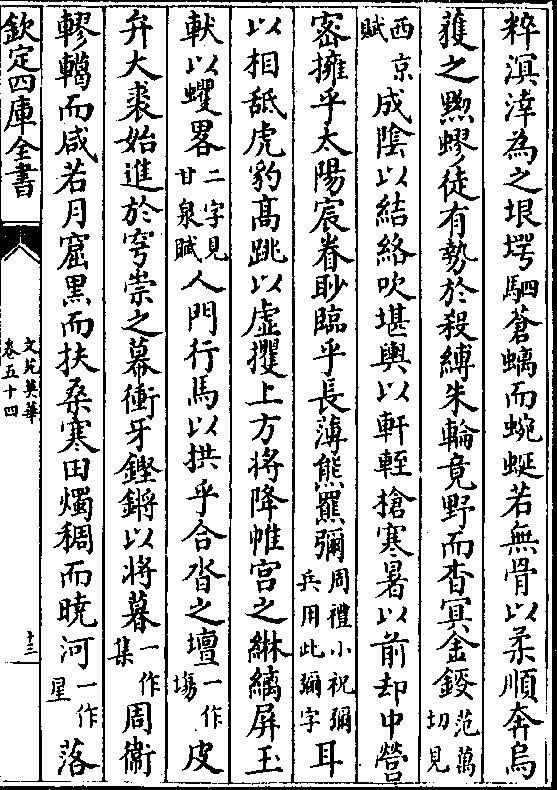 粹溟涬為之垠堮駟蒼螭而蜿蜒若無骨以柔順奔烏
蒦之黝蟉徒有勢於殺縛朱輪竟野而杳冥金鍐范萬切見
西京賦成陰以結絡吹堪輿以軒輊搶寒暑以前却中營
宻擁乎太陽宸眷眇臨乎長薄熊羆彌周禮小祝彌兵用此彌字耳
以相舐虎豹髙跳以虛攫上方將降帷宫之綝纚屏玉
軑以蠼畧二字見甘泉賦人門行馬以拱乎合沓之壇一作塲皮
弁大裘始進於穹崇之幕衝牙鏗鏘以將暮一作集周衛
轇轕而咸若月窟黒而扶桑寒田燭稠而暁河一作星落
欽定四庫全書
文苑英華
卷五十四
十三